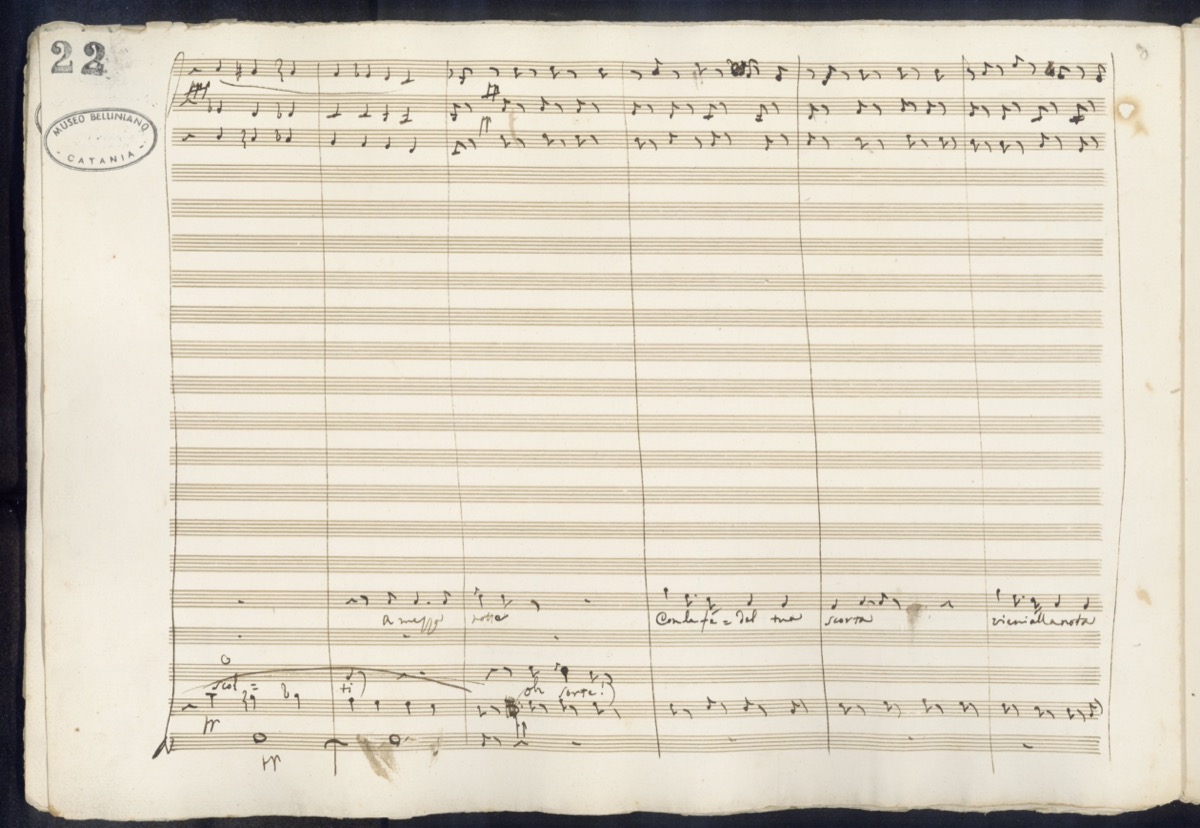 22
MUSEO BELLINIANO
- CATANIA -
a mezza
notte
Con la fé = del tuo scorta vieni alla nota
scol = ti
oh sorte!